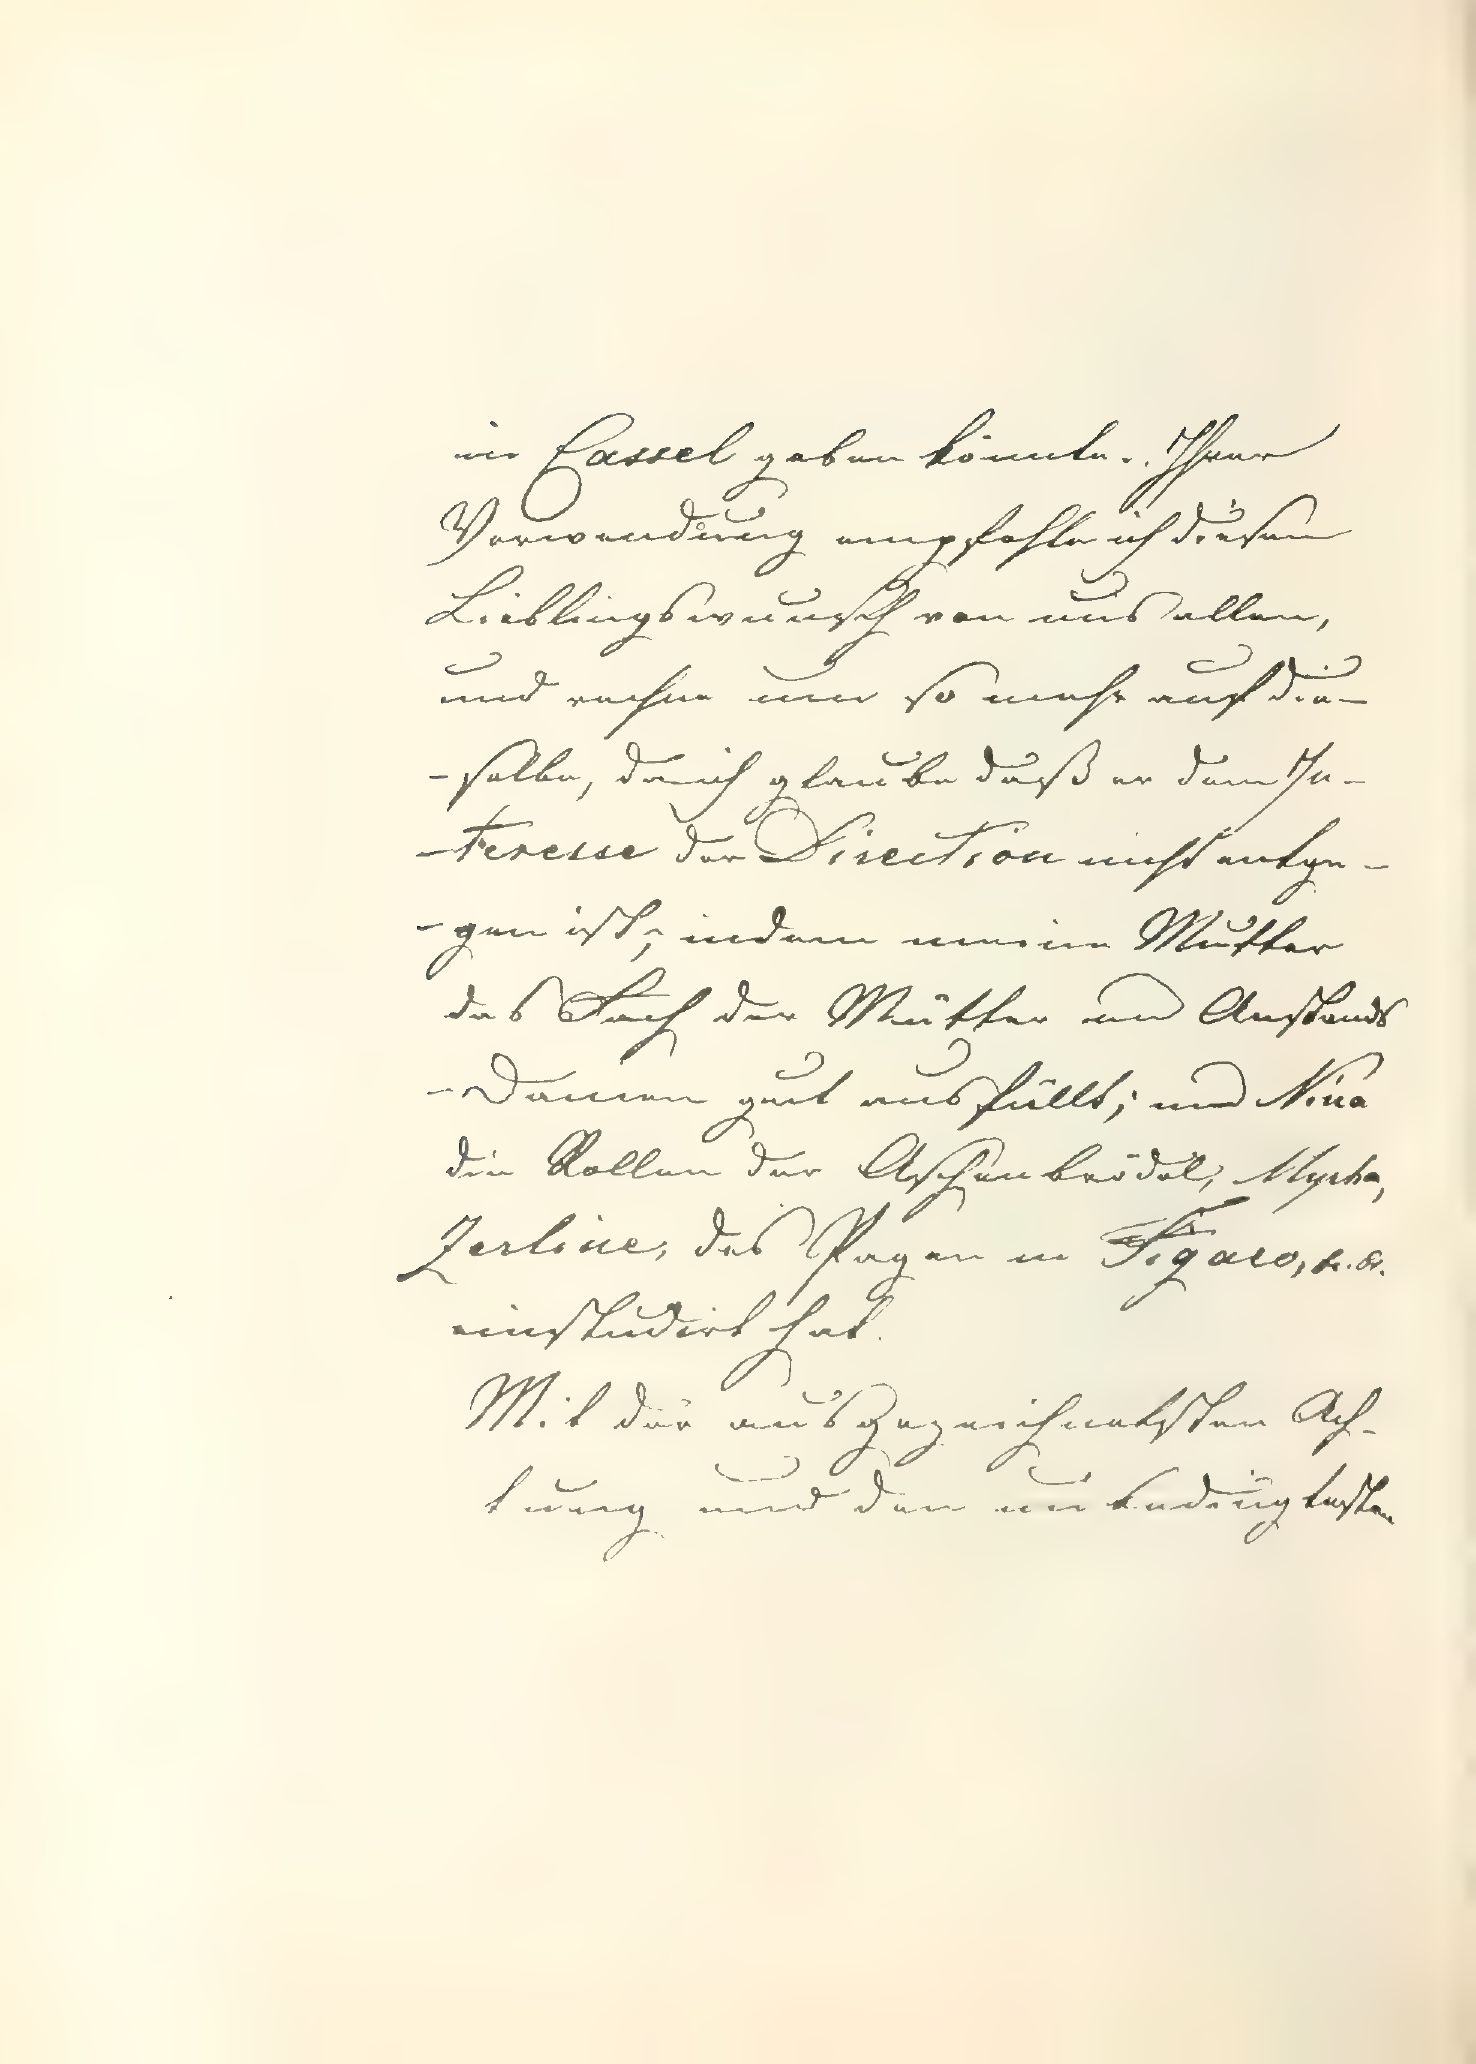 in Cassel geben könnte. Ihrer
Verwendung empfehle ich diesen
Lieblingswunsch von uns allen,
und rechne um so mehr auf die-
-selbe, da ich glaube daß er dem In-
-teresse der Direction nicht entge-
-gen ist, indem meine Mutter
das Fach der Mütter und Anstands
-Damen gut ausfüllt; und Nina
die Rollen der Aschenbrödel, Myrha,
Zerline, des Pagen in Figaro, &c. &c.
einstudirt hat.
Mit der ausgezeichnetsten Ach-
tung und den unbedingtesten